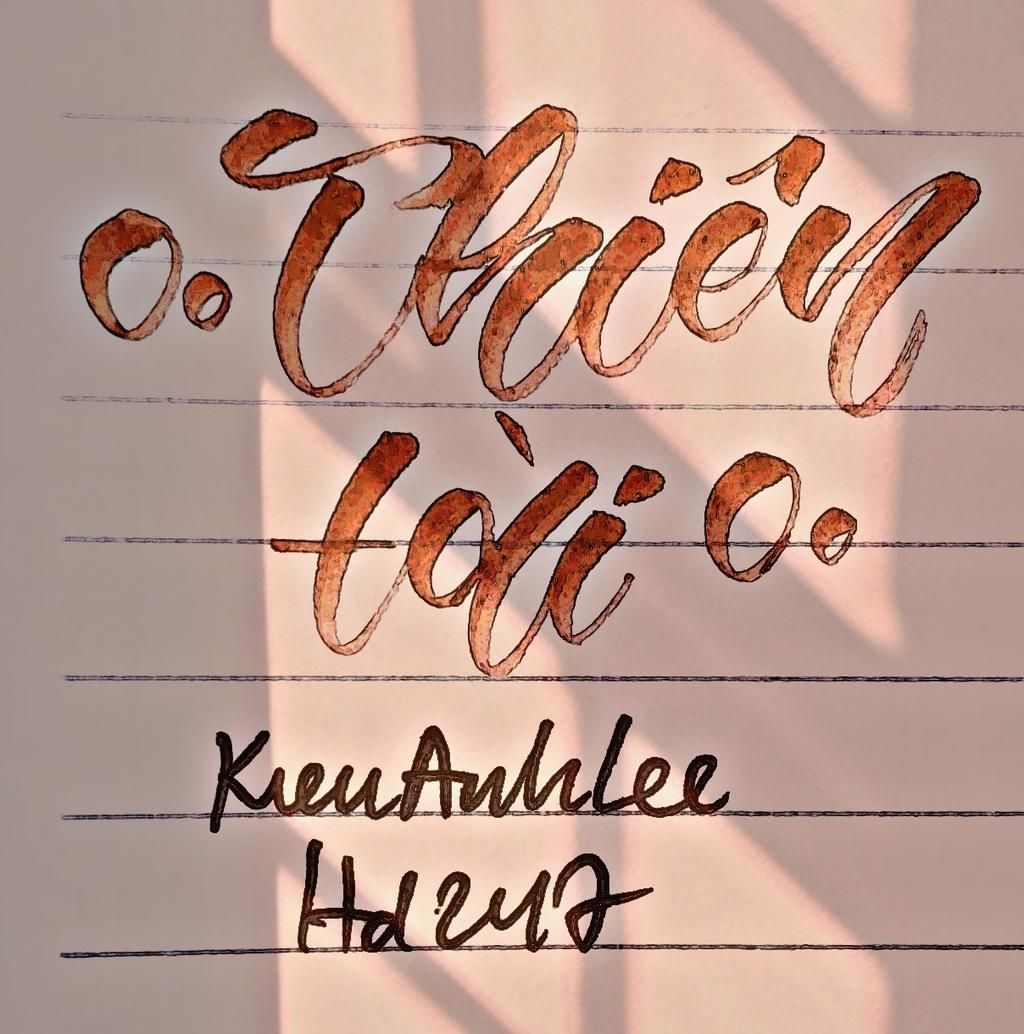 O. Thiên
tài O.
KienAnhLee
Hd247